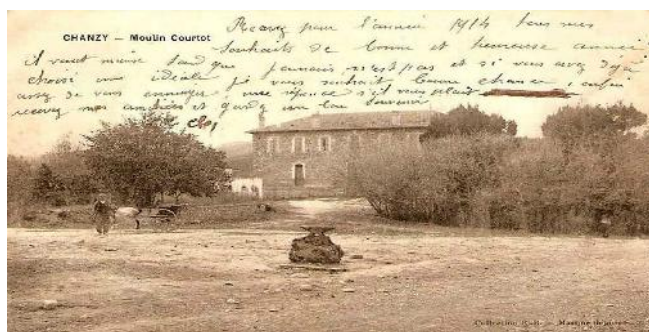 CHANZY – Moulin Courtot
Recevez pour l'année 1914 tous mes
souhaits de bonne et heureuse année
il vaut mieux tard que jamais n'est pas et si vous avez déjà
choisi un idéale je vous souhait bonne chance, enfin
assez de vous ennuyer, une réponse s'il vous plait
recevez mes amitiées et gardez un bon souvenir
Collection